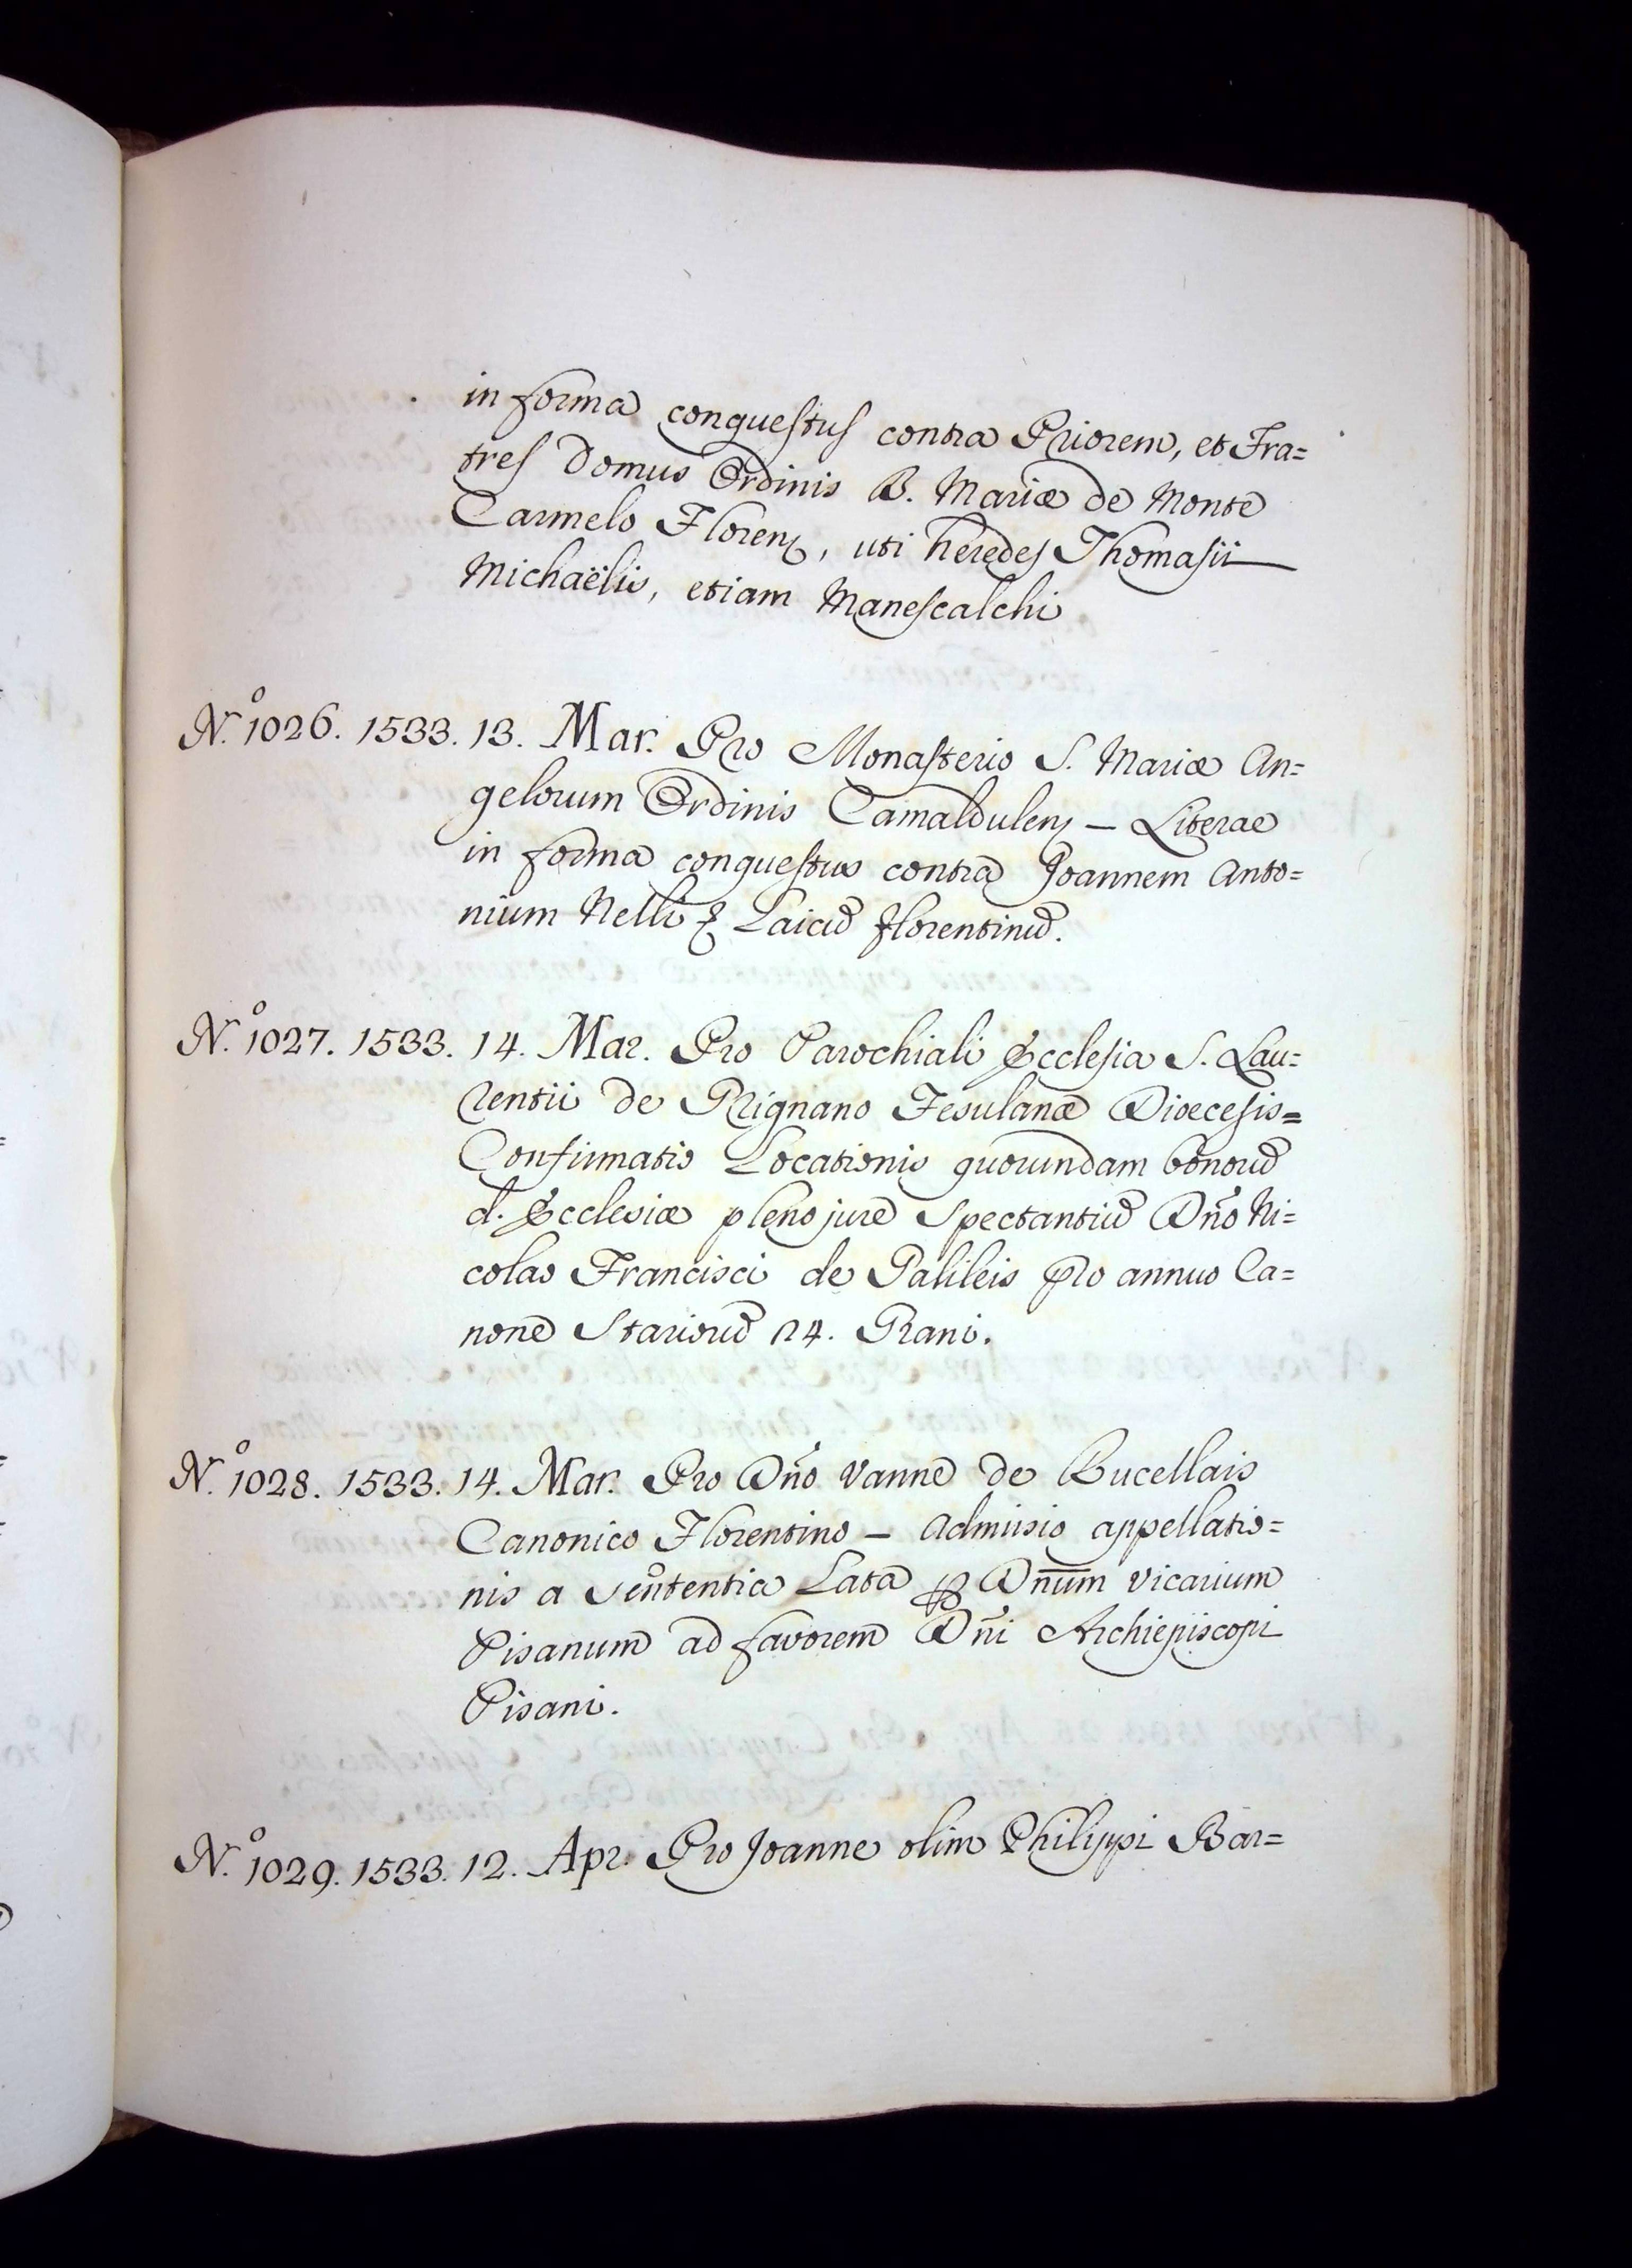 in forma conquestus contra Priorem, et Fra=
tres Domus Ordinis B. Mariæ de Monte
Carmelo Floren̄, uti heredes Thomasii
Michaëlis, etiam Manescalchi
N.º 1026. 1533. 13. Mar. Pro Monasterio S. Mariæ An=
gelorum Ordinis Camaldulen̄ – Literae
in forma conquestus contra Joannem Anto=
nium Nelli & Laicū Florentinū.
N.º 1027. 1533. 14. Mar. Pro Parochiali Ecclesia S. Lau=
rentii de Rignano Fesulanæ Dioecesis=
Confirmatio Locationis quorundam bonorū
d. Ecclesiæ pleno jure Spectantiū Dño Ni=
colao Francisci de Galileis pro annuo Ca=
none Stariorū 24. Grani.
N.º 1028. 1533. 14. Mar. Pro Dño Vanne de Bucellais
Canonico Florentino – Admissio appellatio=
nis a Sententia Lata ꝑ Dnum Vicarium
Pisanum ad favorem Dñi Archiepiscopi
Pisani.
N.º 1029. 1533. 12. Apr. Pro Joanne olim Philippi Bar=